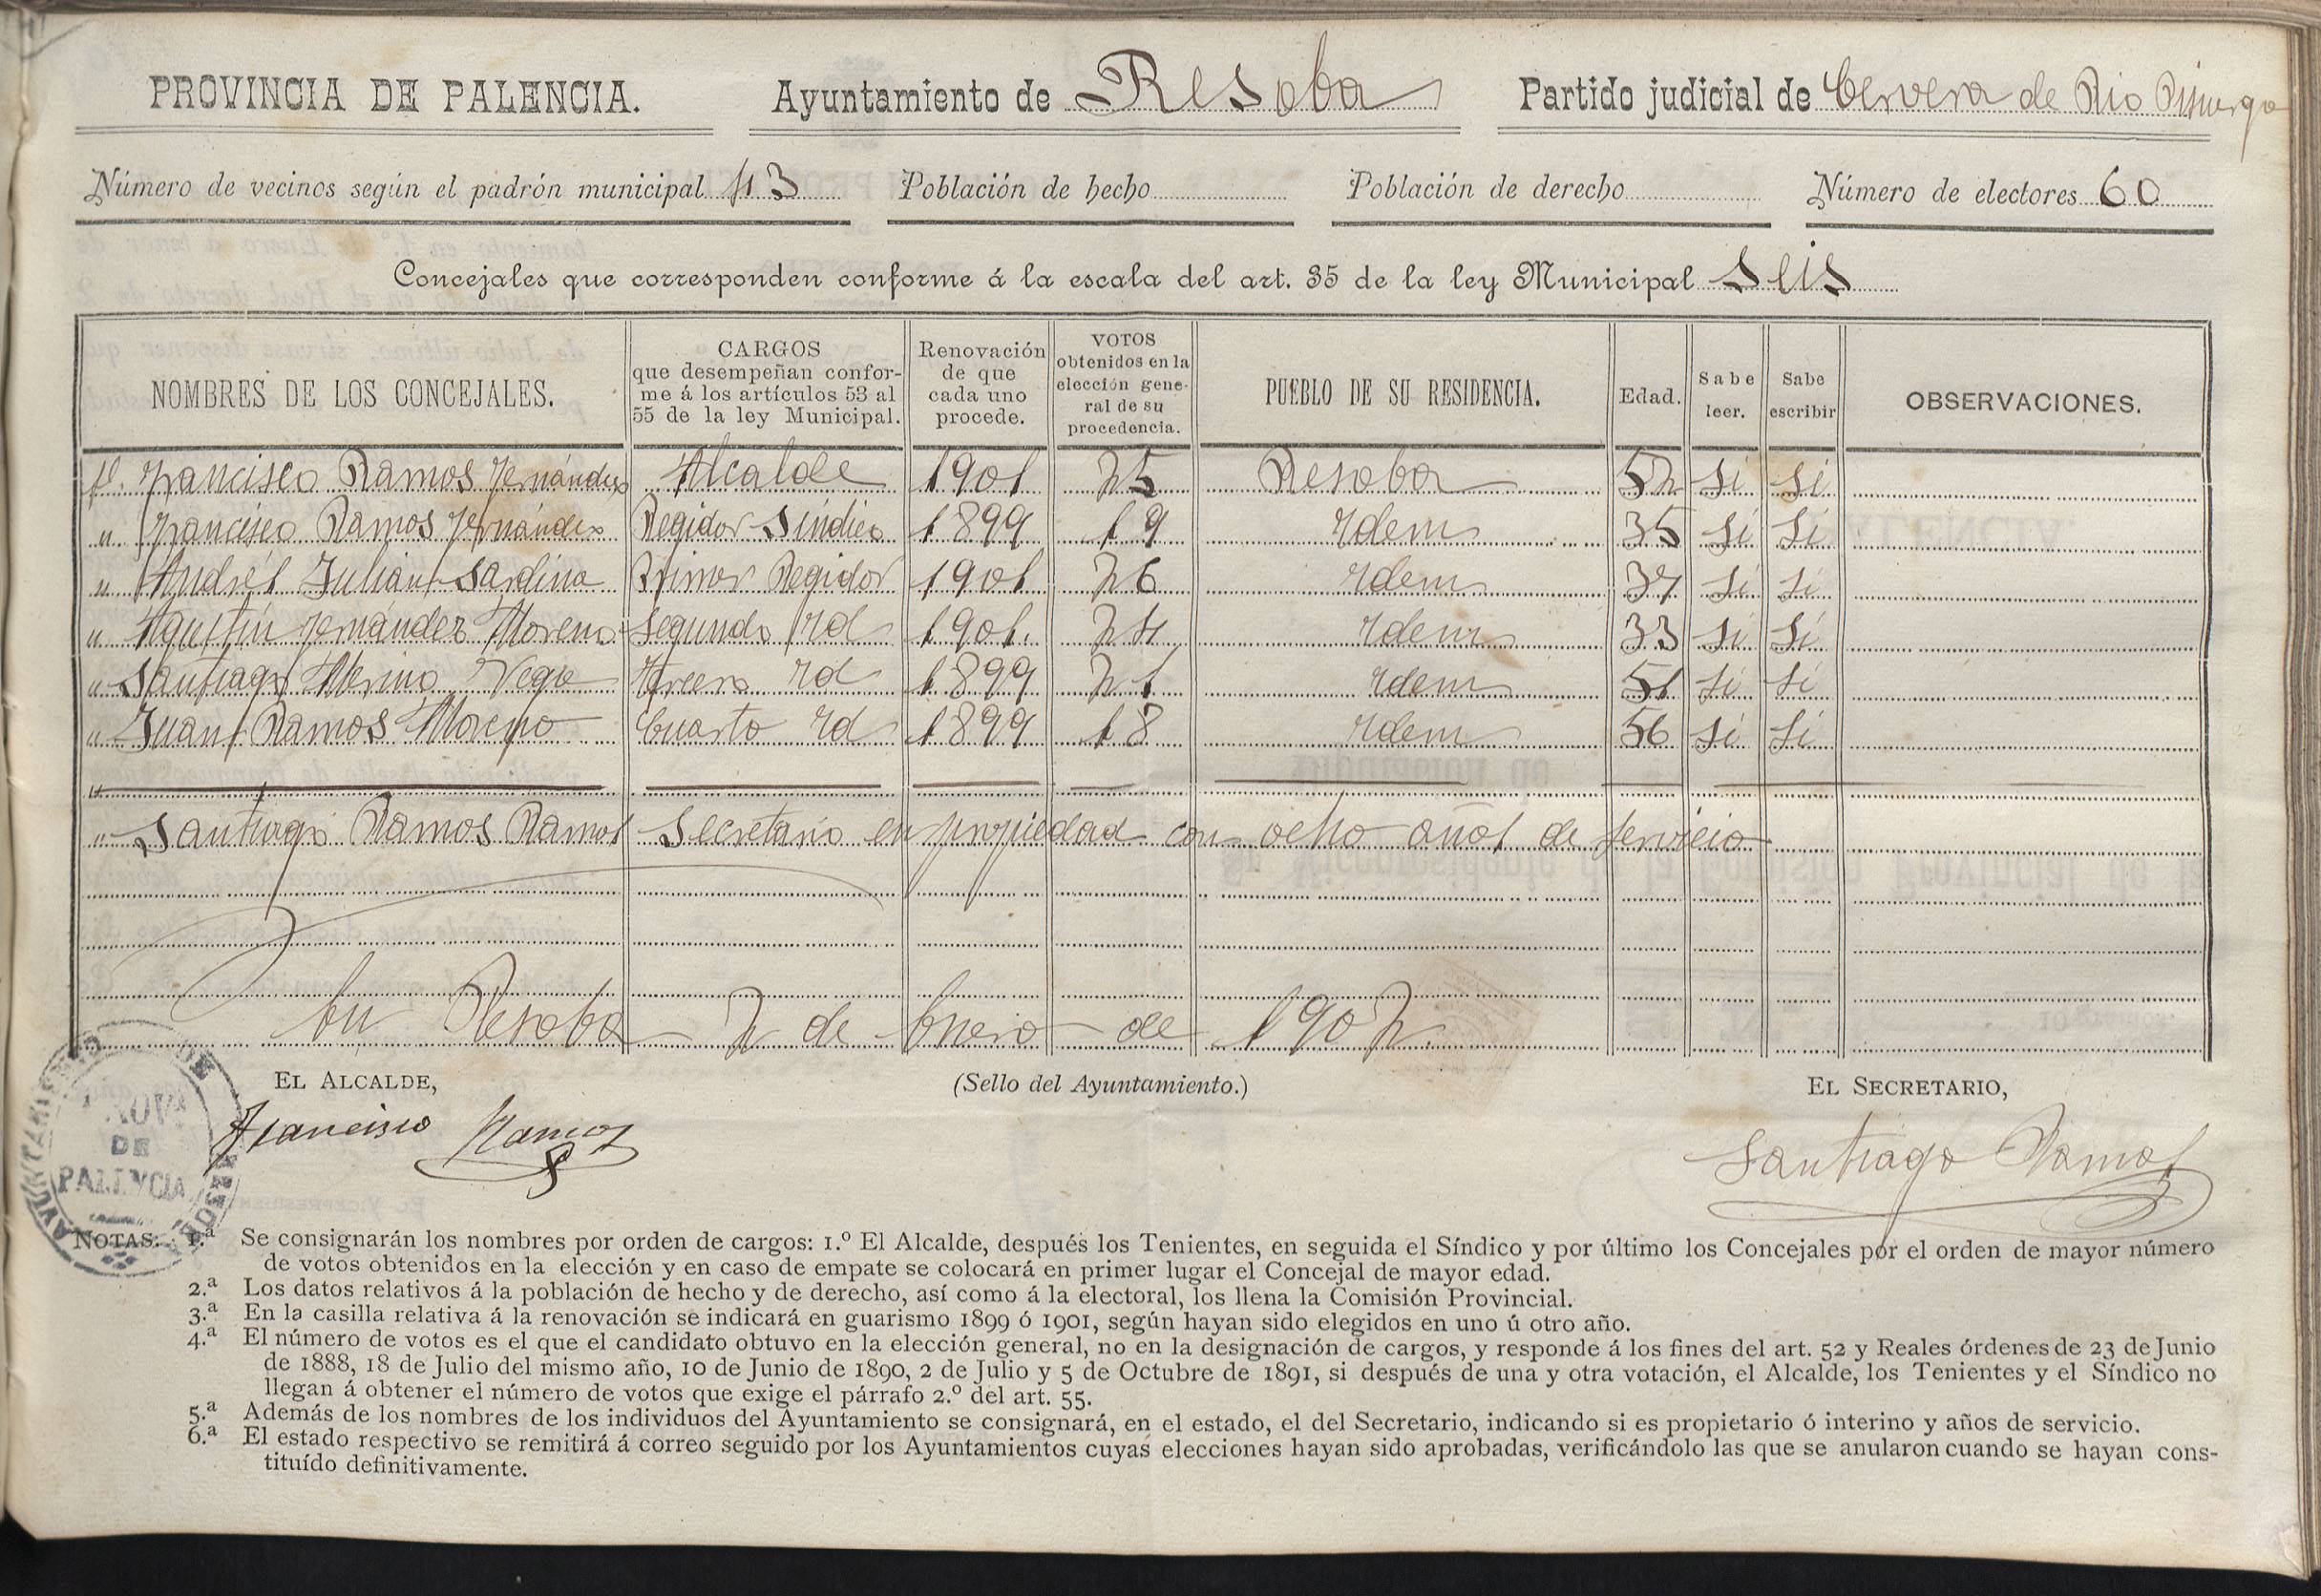 PROVINCIA DE PALENCIA. Ayuntamiento de Resoba Partido judicial de Cervera de Rio Pisuerga
Número de vecinos según el padrón municipal 43 Población de hecho Población de derecho Número de electores 60
Concejales que corresponden conforme á la escala del art. 35 de la ley Municipal seis
NOMBRES DE LOS CONCEJALES. CARGOS que desempeñan conforme á los artículos 53 al 55 de la ley Municipal. Renovación de que cada uno procede. VOTOS obtenidos en la elección general de su procedencia. PUEBLO DE SU RESIDENCIA. Edad. Sabe leer. Sabe escribir OBSERVACIONES.
D. Francisco Ramos Fernández Alcalde 1901 25 Resoba 52 Si Si
" Francisco Ramos Fernández Regidor Síndico 1899 19 Idem 35 Si Si
" Andrés Julian Sardina Primer Regidor 1901 26 Idem 37 Si Si
" Agustín Fernández Moreno Segundo Id 1901. 24 Idem 33 Si Si
" Santiago Merino Vega Tercero Id 1899 21 Idem 51 Si Si
" Juan Ramos Moreno Cuarto Id 1899 18 Idem 56 Si Si
"
" Santiago Ramos Ramos Secretario en propiedad con ocho años de servicio
En Resoba 2 de Enero de 1902
EL ALCALDE, (Sello del Ayuntamiento.) EL SECRETARIO,
Francisco Ramos Santiago Ramos
AYUNTAMIENTO DE RESOBA
PROVA
DE
PALENCIA
NOTAS. 1.ª Se consignarán los nombres por orden de cargos: 1.º El Alcalde, después los Tenientes, en seguida el Síndico y por último los Concejales por el orden de mayor número
de votos obtenidos en la elección y en caso de empate se colocará en primer lugar el Concejal de mayor edad.
2.ª Los datos relativos á la población de hecho y de derecho, así como á la electoral, los llena la Comisión Provincial.
3.ª En la casilla relativa á la renovación se indicará en guarismo 1899 ó 1901, según hayan sido elegidos en uno ú otro año.
4.ª El número de votos es el que el candidato obtuvo en la elección general, no en la designación de cargos, y responde á los fines del art. 52 y Reales órdenes de 23 de Junio
de 1888, 18 de Julio del mismo año, 10 de Junio de 1890, 2 de Julio y 5 de Octubre de 1891, si después de una y otra votación, el Alcalde, los Tenientes y el Síndico no
llegan á obtener el número de votos que exige el párrafo 2.º del art. 55.
5.ª Además de los nombres de los individuos del Ayuntamiento se consignará, en el estado, el del Secretario, indicando si es propietario ó interino y años de servicio.
6.ª El estado respectivo se remitirá á correo seguido por los Ayuntamientos cuyas elecciones hayan sido aprobadas, verificándolo las que se anularon cuando se hayan cons-
tituído definitivamente.